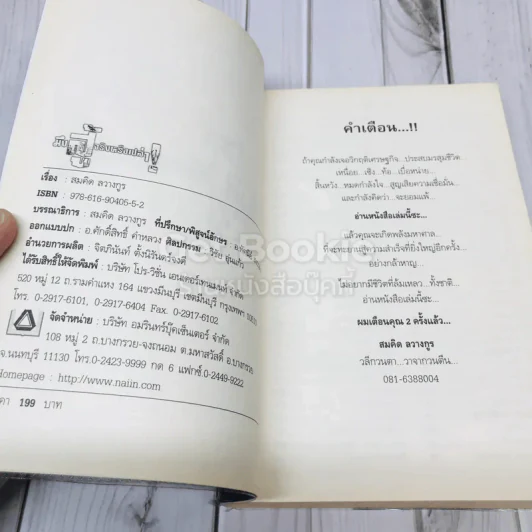 มัน
จริงหรือเปล่า!
เรื่อง : สมคิด ลวางกูร
ISBN : 978-616-90405-5-2
บรรณาธิการ : สมคิด ลวางกูร ที่ปรึกษา/พิสูจน์อักษร :
ออกแบบปก : อ.ศักดิ์สิทธิ์ คำหลวง ศิลปกรรม : วิรัย
อำนวยการผลิต : จิตภินันท์ ตั้งนิรันดร์จิงดี
ได้รับสิทธิ์ให้จัดพิมพ์ : บริษัท โปร-วิชั่น เอนเตอร์เทนเมนท์ จำกัด
520 หมู่ 12 ถ.รามคำแหง 164 แขวงมีนบุรี เขตมีนบุรี กรุงเทพฯ
โทร. 0-2917-6101, 0-2917-6404 Fax. 0-2917-6102
จัดจำหน่าย : บริษัท อมรินทร์บุ๊คเซ็นเตอร์ จำกัด
108 หมู่ 2 ถ.บางกรวย-จงถนอม ต.มหาสวัสดิ์ อ.บางกรวย
จ.นนทบุรี 11130 โทร.0-2423-9999 กด 6 แฟกซ์.0-2449-9222
Homepage : http://www.naiin.com
คา 199 บาท
คำเตือน...!!
ถ้าคุณกำลังเจอวิกฤติเศรษฐกิจ...ประสบมรสุมชีวิต
เหนื่อย...เซ็ง...ท้อ...เบื่อหน่าย...
สิ้นหวัง...หมดกำลังใจ...สูญเสียความเชื่อมั่น...
และกำลังคิดว่า...จะยอมแพ้...
อ่านหนังสือเล่มนี้ซะ...
แล้วคุณจะเกิดพลังมหาศาล...
ที่จะทะยานสู่ความสำเร็จที่ยิ่งใหญ่อีกครั้ง...
อย่างกล้าหาญ...
ไม่อยากมีชีวิตที่ล้มเหลว...ทั้งชาติ...
อ่านหนังสือเล่มนี้ซะ...
ผมเตือนคุณ 2 ครั้งแล้ว...
สมคิด ลวางกูร
วลีกวนตา...วาจากวนตีน...
081-6388004
Get Bookie
ร้านหนังสือบุ๊คกี้